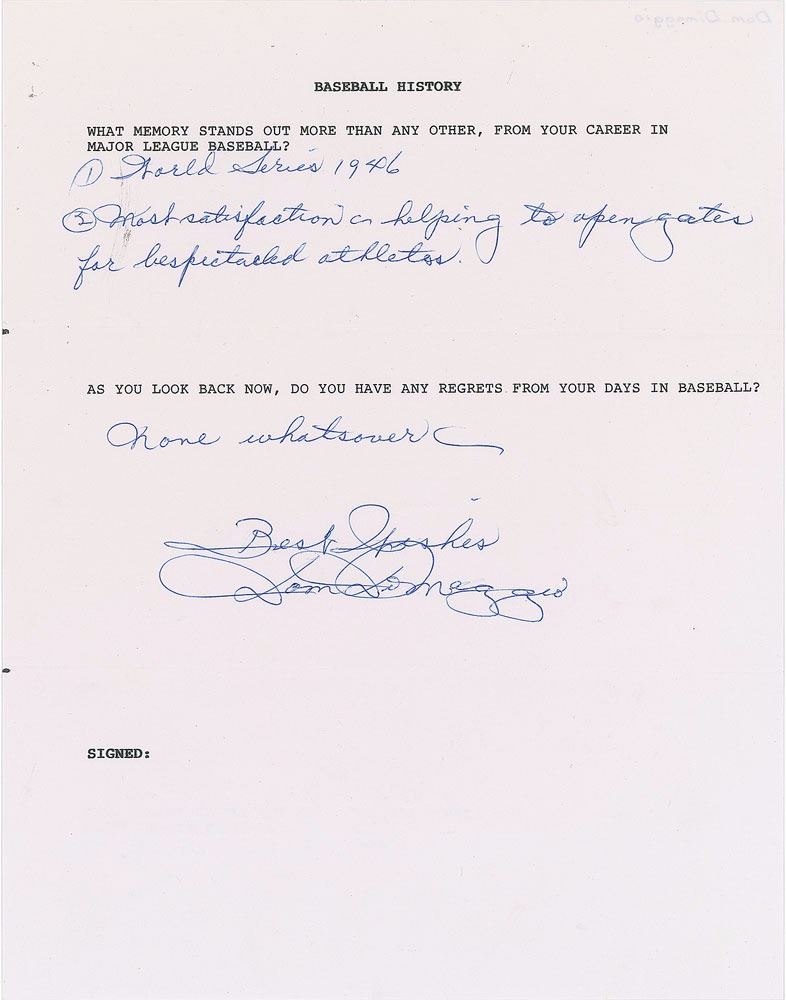 Dom Dimaggio
BASEBALL HISTORY
WHAT MEMORY STANDS OUT MORE THAN ANY OTHER, FROM YOUR CAREER IN
MAJOR LEAGUE BASEBALL?
① World Series 1946
② Most satisfaction helping to open gates
for bespectacled athletes.
AS YOU LOOK BACK NOW, DO YOU HAVE ANY REGRETS FROM YOUR DAYS IN BASEBALL?
None whatsover
Best Wishes
Dom DiMaggio
SIGNED: